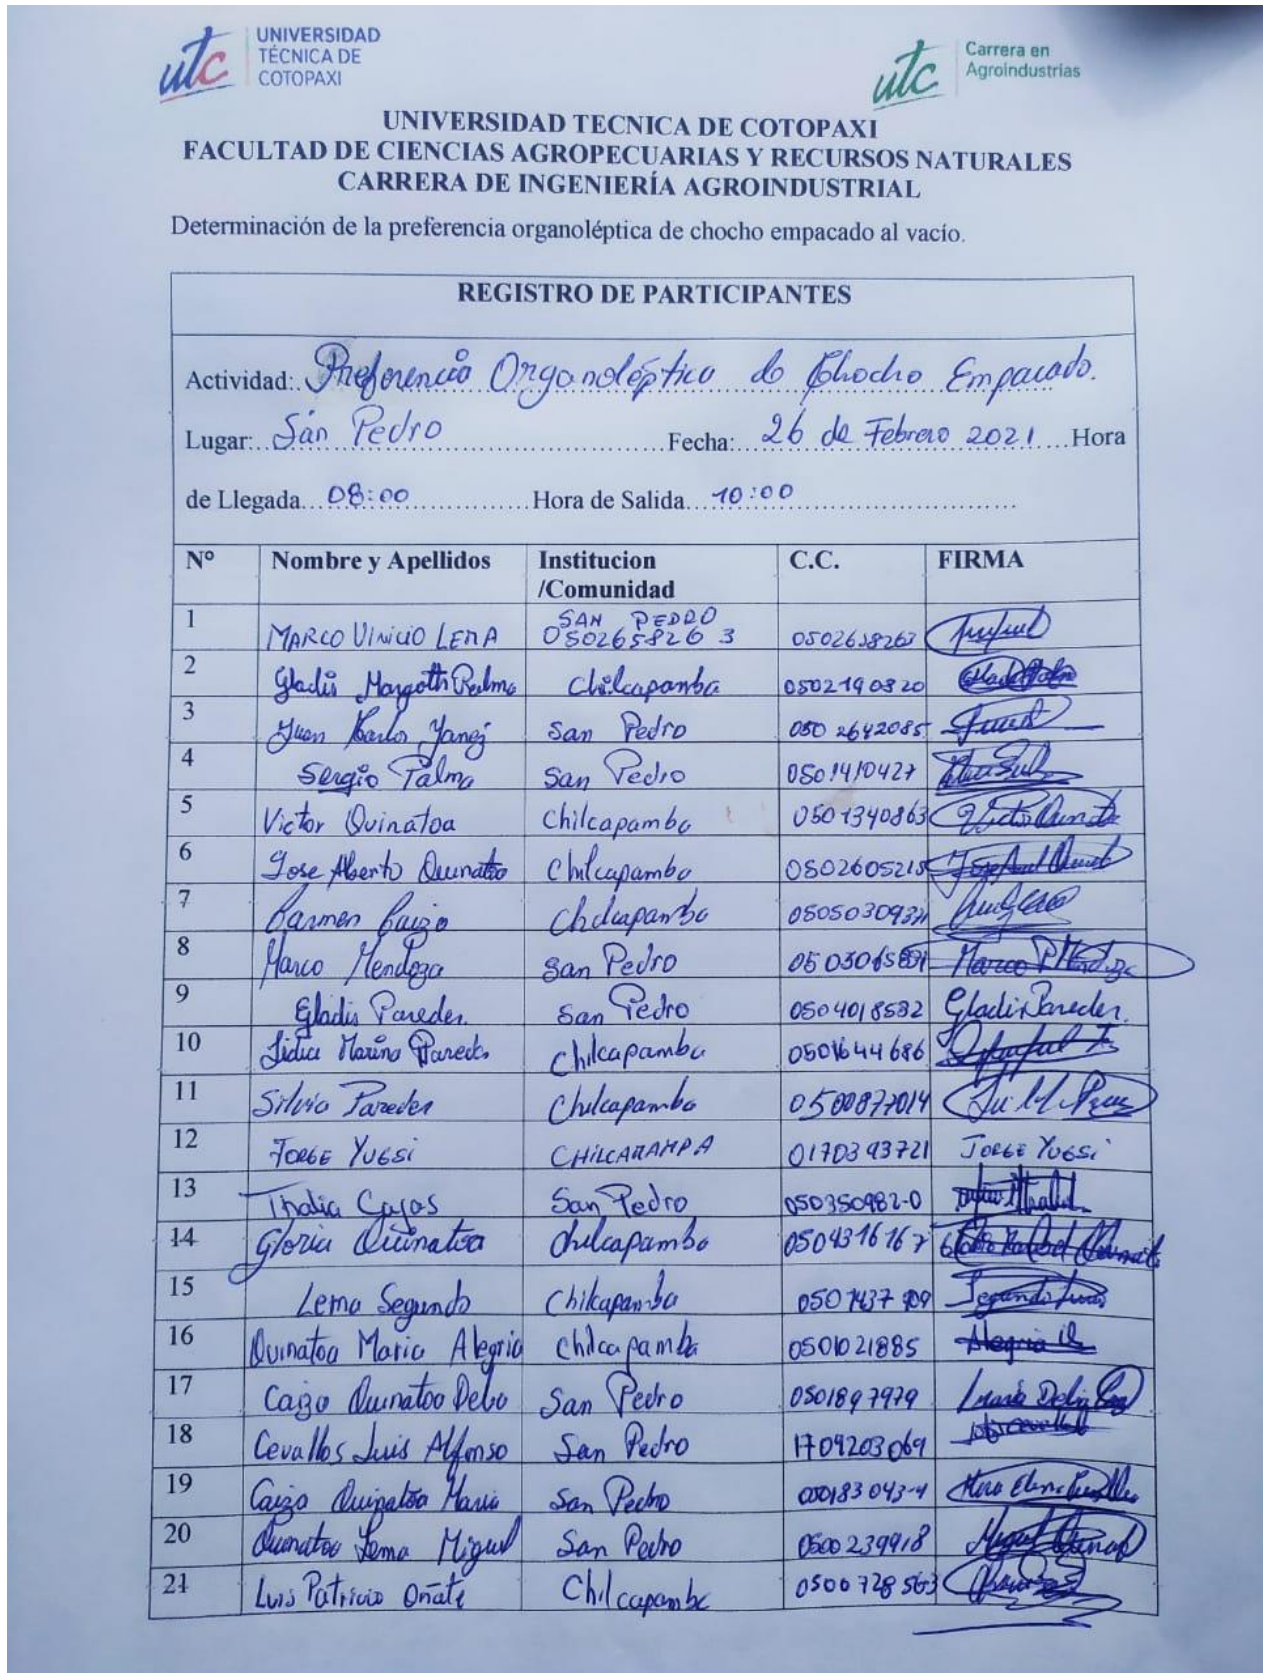 utc UNIVERSIDAD
TÉCNICA DE
COTOPAXI
utc Carrera en
Agroindustrias
UNIVERSIDAD TECNICA DE COTOPAXI
FACULTAD DE CIENCIAS AGROPECUARIAS Y RECURSOS NATURALES
CARRERA DE INGENIERÍA AGROINDUSTRIAL
Determinación de la preferencia organoléptica de chocho empacado al vacío.
REGISTRO DE PARTICIPANTES
Actividad: Preferencia Organoléptica de Chocho Empacado.
Lugar: San Pedro Fecha: 26 de Febrero 2021 Hora
de Llegada 08:00 Hora de Salida 10:00
N° Nombre y Apellidos Institucion /Comunidad C.C. FIRMA
1 MARCO VINICIO LEMA SAN PEDRO 0502658263 0502658263
2 Gladis Margoth Palma Chilcapamba 0502190820
3 Juan Carlos Yanez San Pedro 050 2642085
4 Sergio Palma San Pedro 0501410427
5 Victor Quinatoa Chilcapamba 0501340863
6 Jose Alberto Quinatoa Chilcapamba 0502605215
7 Carmen Caiza Chilcapamba
8 Marco Mendoza San Pedro
9 Gladis Paredes San Pedro 0504018582 Gladis Paredes.
10 Lidia Marina Paredes Chilcapamba 0501644686
11 Silvia Paredes Chilcapamba 0500877014
12 JORGE YUGSI CHILCARAMPA 0170393721 JORGE YUGSI
13 Thalia Cajas San Pedro 050350982-0
14 Gloria Quinatoa Chilcapamba 0504316167
15 Lema Segundo Chilcapamba Segundo
16 Quinatoa Maria Alegria Chilcapamba 0501021885 Alegria Q
17 Caiza Quinatoa Delia San Pedro 0501897979
18 Cevallos Luis Alfonso San Pedro 1709203069
19 Caiza Quinatoa Maria San Pedro
20 Quinatoa Lema Miguel San Pedro 0500239918
21 Luis Patricio Oñate Chilcapamba 0500728563